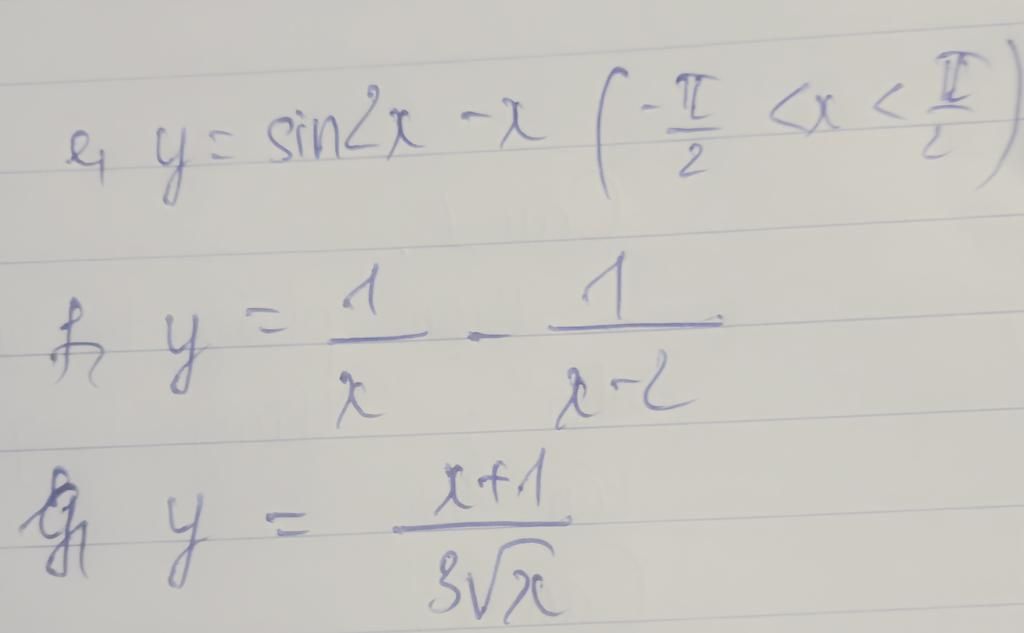 e, y = sin2x - x (-π/2 < x < π/2)
f, y = 1/x - 1/(x-2)
g, y = (x+1)/(3√x)